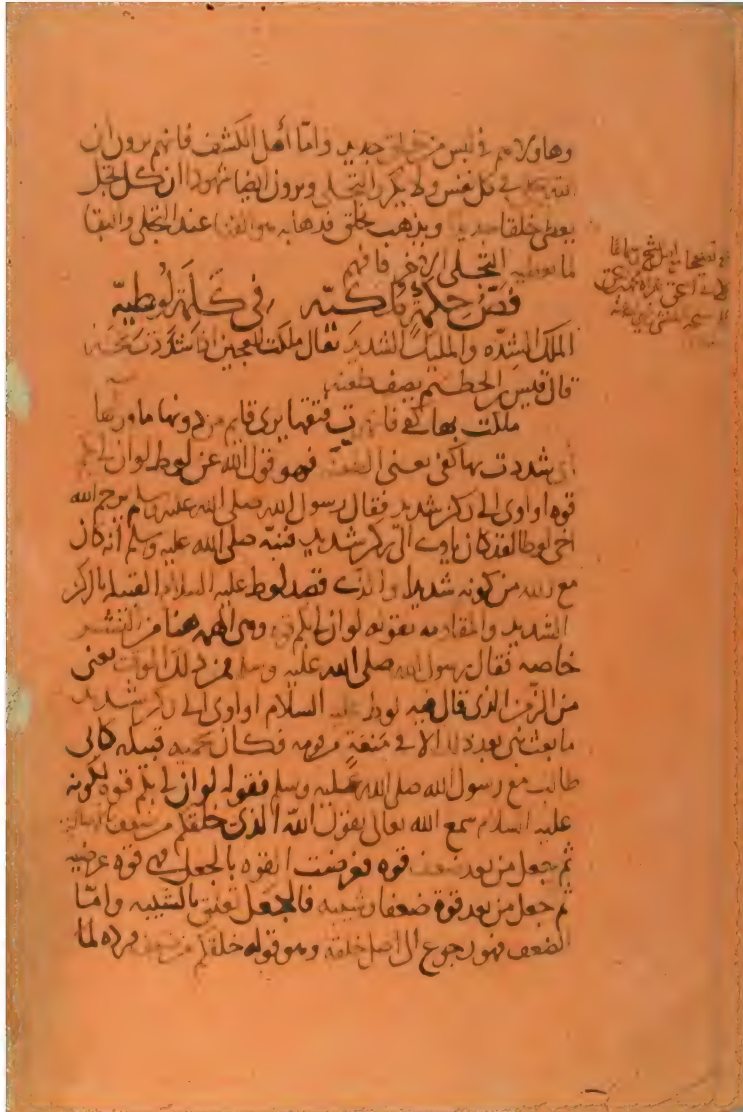 وهاولا هم في لبس من خلق جديد واما أهل الكشف فانهم يرون ان
الله يتجلى في كل نفس ولا يكرر التجلي ويرون ايضا شهودا ان كل تجل
يعطي خلقا جديدا ويذهب بخلق فذهابه هو الفنا عند التجلي والبقا
لما يعطيه التجلي الاخر فافهم
فص حكمة ملكية في كلمة لوطية
الملك الشده والمليك الشديد يقال ملكت العجين اذا شددت عجنه
قال قيس بن الحطيم يصف طعنه
ملكت بها كفي فانهرت فتقها يرى قايم من دونها ما وراها
أي شددت بها كفي يعني الطعنة فهو قول الله عن لوط لو ان لي بكم
قوه او اوى الى ركن شديد فقال رسول الله صلى الله عليه وسلم يرحم الله
اخي لوطا لقد كان ياوى الى ركن شديد فنبه صلى الله عليه وسلم انه كان
مع الله من كونه شديدا والذي قصد لوط عليه السلام القبيله بالركن
الشديد والمقاومه بقوله لو ان لي بكم قوه وهي الهمه هنا من البشر
خاصه فقال رسول الله صلى الله عليه وسلم فمن ذلك الوقت يعني
من الزمن الذي قال فيه لوط عليه السلام او اوى الى ركن شديد
ما بعث نبي بعد ذلك الا في منعة من قومه فكان تحميه قبيله كابي
طالب مع رسول الله صلى الله عليه وسلم فقوله لو ان لي بكم قوه لكونه
عليه السلام سمع الله تعالى يقول الله الذي خلقكم من ضعف بالاصالة
ثم جعل من بعد ضعف قوه فعرضت القوه بالجعل فهي قوه عرضيه
ثم جعل من بعد قوة ضعفا وشيبه فالجعل تعلق بالشيبه واما
الضعف فهو رجوع الى اصل خلقه وهو قوله خلقكم من ضعف فرده لما